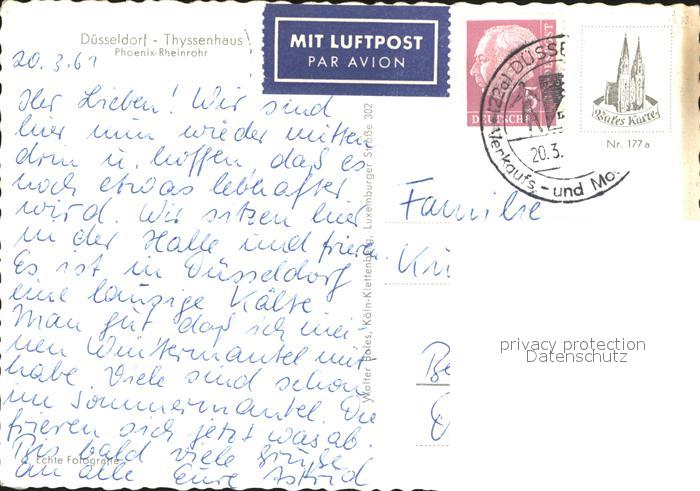 Düsseldorf - Thyssenhaus
Phoenix-Rheinrohr
MIT LUFTPOST
PAR AVION
20.3.61
Ihr Lieben! Wir sind
hier nun wieder mitten
drin u. hoffen, daß es
noch etwas lebhafter
wird. Wir sitzen hier
in der Halle und frieren.
Es ist in Düsseldorf
eine lausige Kälte
Man gut daß ich mei-
nen Wintermantel mit
habe. Viele sind schon
im Sommermantel. Die
frieren sich jetzt was ab.
Bis bald viele Grüße
an alle Eure Astrid
Echte Fotografie
Walter Bales, Köln-Klettenberg, Luxemburger Straße 302
DEUTSCHE BUNDESPOST
5
(22a) DÜSSE
20.3.
Verkaufs- und Mo
Bales Karte
Nr. 177a
Familie
privacy protection
Datenschutz